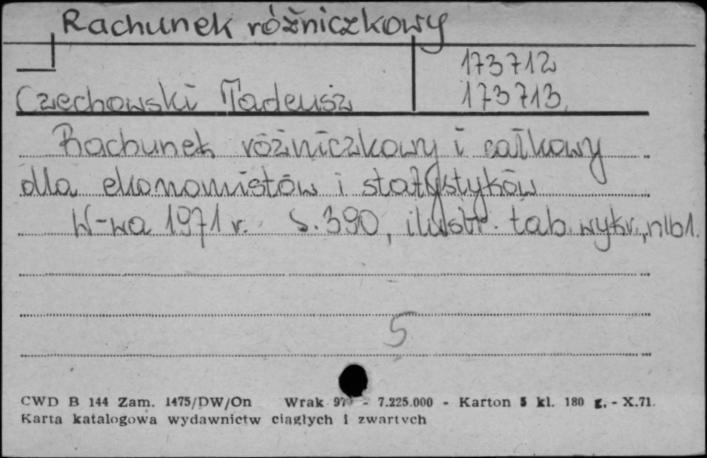 Rachunek różniczkowy
173712
Czechowski Tadeusz
173713
Rachunek różniczkowy i całkowy
dla ekonomistów i statystyków
W-wa 1971 r. S. 390, ilustr. tab. wykr., nlb 1.
5
CWD B 144 Zam. 1475/DW/On Wrak 97 - 7.225.000 - Karton 5 kl. 180 g. - X.71.
Karta katalogowa wydawnictw ciągłych i zwartych